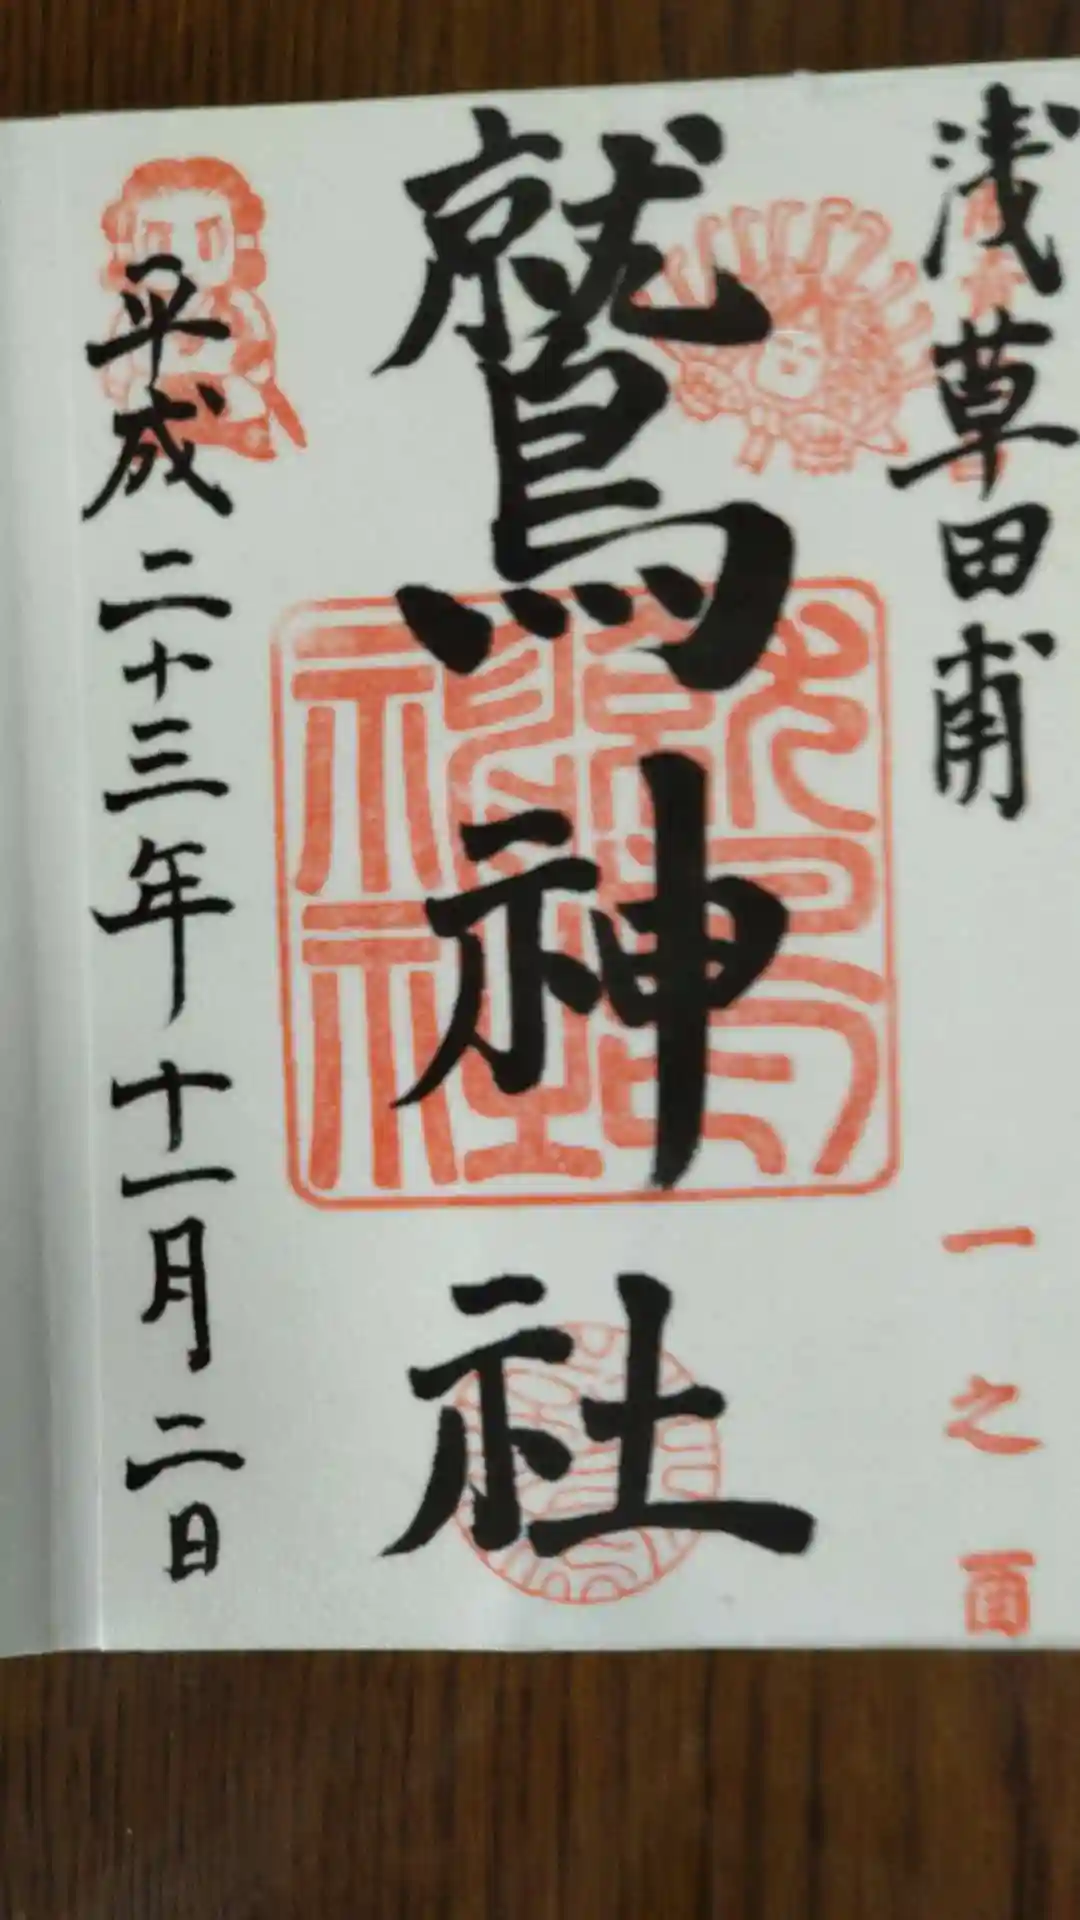 浅草田甫
一之酉
鷲神社
鷲神社
平成二十三年十一月二日